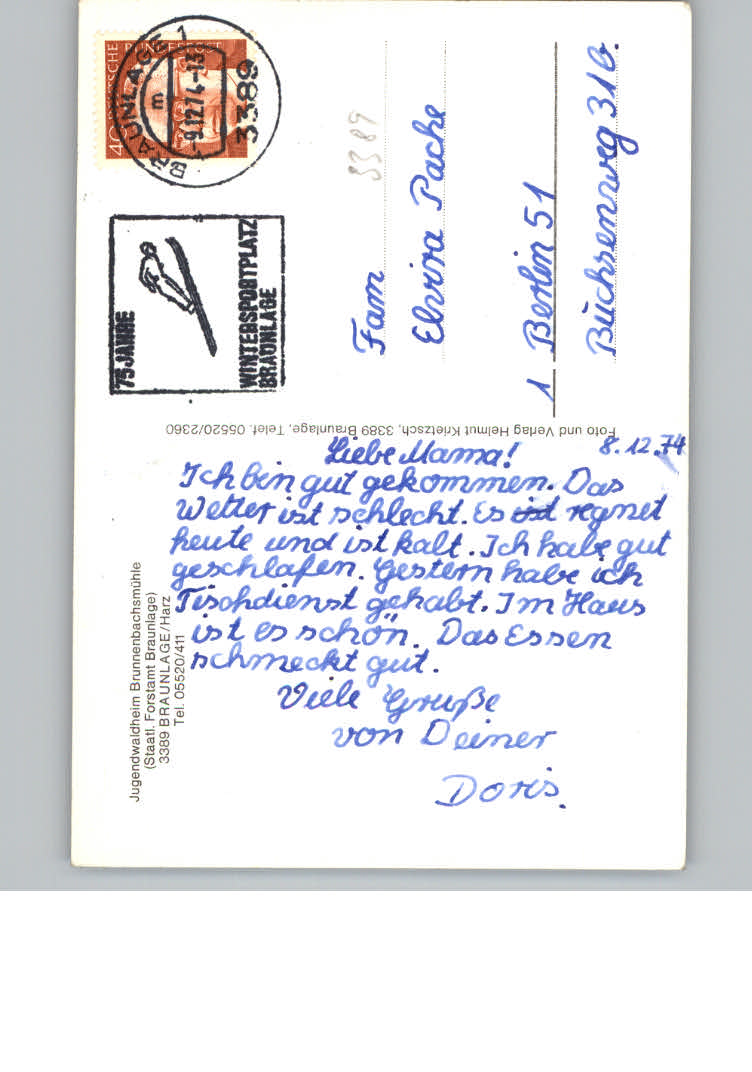 DEUTSCHE BUNDESPOST
40
BRAUNLAGE 1
m
-9.12.74-13
3389
75 JAHRE
WINTERSPORTPLATZ
BRAUNLAGE
3389
Fam
Elvira Pache
1 Berlin 51
Büchsenweg 31b.
Foto und Verlag Helmut Krietzsch, 3389 Braunlage, Telef. 05520/2360
Jugendwaldheim Brunnenbachsmühle
(Staatl. Forstamt Braunlage)
3389 BRAUNLAGE/Harz
Tel. 05520/411
8.12.74
Liebe Mama!
Ich bin gut gekommen. Das
Wetter ist schlecht. Es ist regnet
heute und ist kalt. Ich habe gut
geschlafen. Gestern habe ich
Tischdienst gehabt. Im Haus
ist es schön. Das Essen
schmeckt gut.
Viele Gruße
von Deiner
Doris.